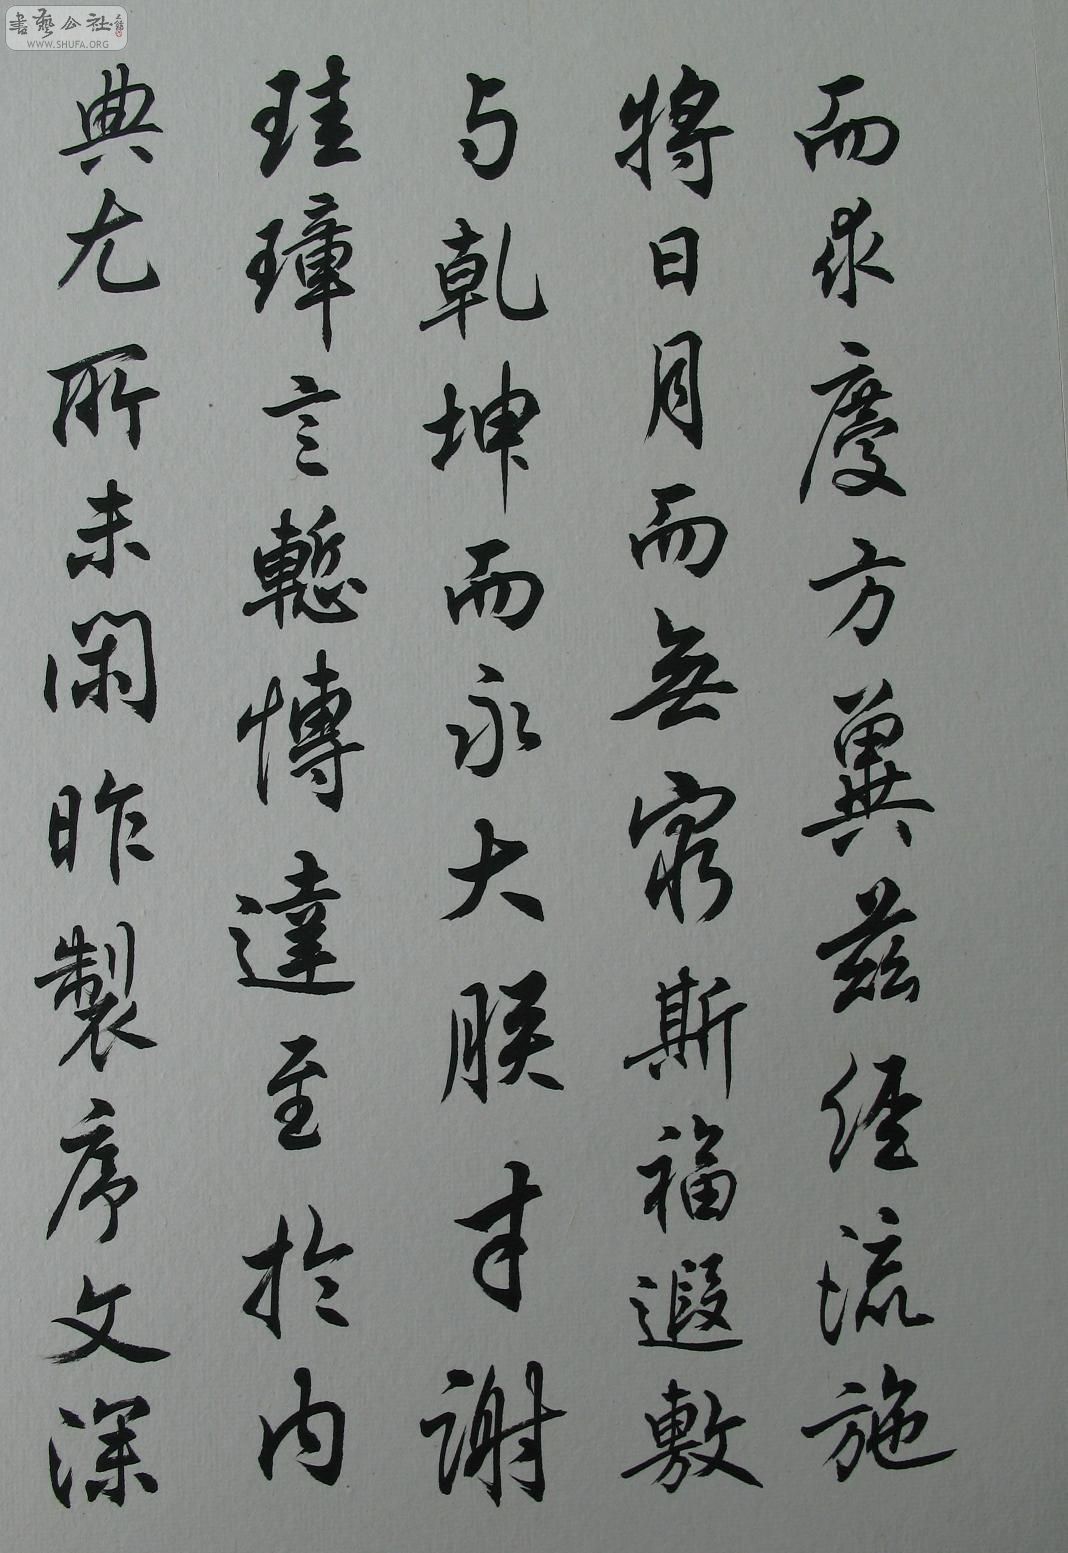 而求慶方冀茲經流施
將日月而無窮斯福遐敷
与乾坤而永大朕才謝
珪璋言慙博達至於内
典尤所未閑昨製序文深
書藝公社
WWW.SHUFA.ORG